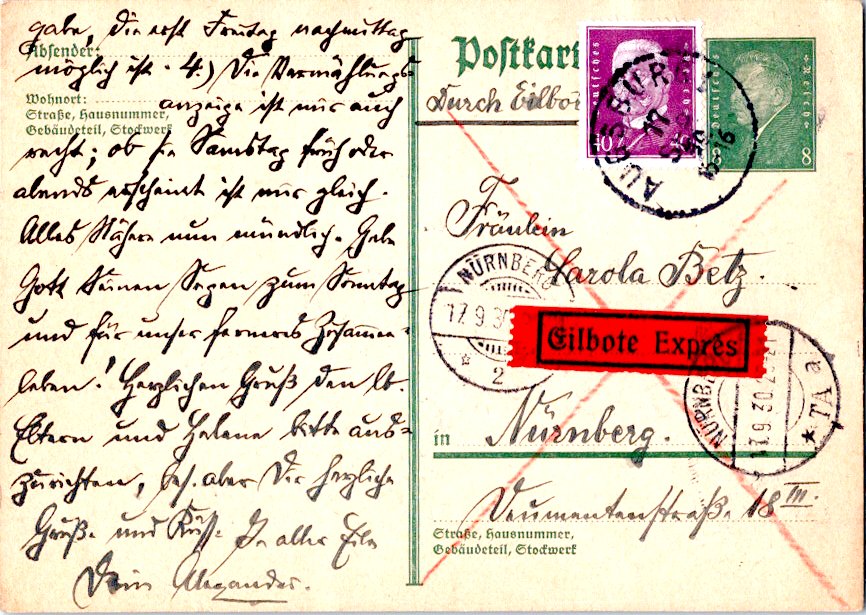 gabe, die erst Freitag nachmittag
Absender:
möglich ist. 4.) Die Vermählungs-
Wohnort:
Straße, Hausnummer,
Gebäudeteil, Stockwerk
anzeige ist mir auch
recht; ob sie Samstag früh oder
abends erscheint ist mir gleich.
Alles Nähere nun mündlich. Gebe
Gott Seinen Segen zum Sonntag
und für unser ferneres Zusammen-
leben! Herzlichen Gruß den lb.
Eltern und Helene bitte aus-
zurichten, bes. aber Dir herzliche
Grüße und Küsse. In aller Eile
Dein Alexander.
Postkart
Durch Eilbo
Deutsches Reich
40
Deutsches Reich
8
AUGSBURG
17
15-16
Fräulein
Carola Betz.
NÜRNBERG
17.9.30
* 2
Eilbote Exprès
NÜRNBERG
17.9.30.
* TA a
in Nürnberg.
Veumentenstraße 18 III.
Straße, Hausnummer,
Gebäudeteil, Stockwerk